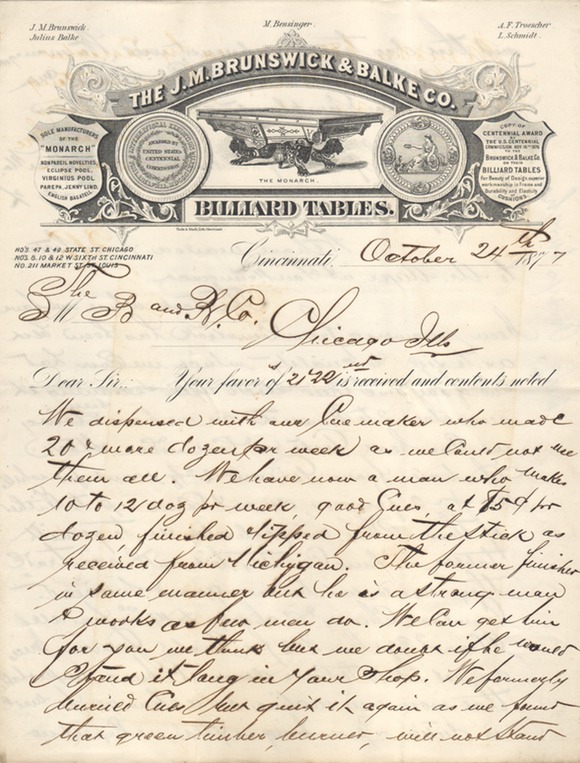 J. M. Brunswick.
Julius Balke.
M. Bensinger.
A. F. Troescher
L. Schmidt.
THE J. M. BRUNSWICK & BALKE CO.
SOLE MANUFACTURERS
OF THE
"MONARCH"
NONPAREIL NOVELTIES,
ECLIPSE POOL,
VIRGINIUS POOL
PAREPA, JENNY LIND,
ENGLISH BAGATELL
INTERNATIONAL EXHIBITION
AWARDED BY
UNITED STATES
CENTENNIAL
COMMISSION
THE MONARCH.
COPY OF
CENTENNIAL AWARD
BY
THE U.S. CENTENNIAL
TO THE
BRUNSWICK & BALKE CO.
ON THEIR
BILLIARD TABLES
for Beauty of Design superior
workmanship in Frame and
Durability and Elasticity
of
CUSHIONS.
BILLIARD TABLES.
NO'S. 47 & 49 STATE ST. CHICAGO
NO'S. 8. 10 & 12 W. SIXTH ST. CINCINNATI
NO. 211 MARKET ST. ST. LOUIS
Cincinnati, October 24th 1877
The B and B. Co.
Chicago Ills
Dear Sir: Your favor s of 21 22 is received and contents noted
We dispensed with our Cue maker who made
20 & more dozen pr week as we Could not use
them all. We have now a man who makes
10 to 12 doz pr week, good Cues, at pr
dozen, finished & tipped from the stick as
received from Michigan. The former finished
in same manner but he is a strong man
& works as few men do. We Can get him
for you we think but we doubt if he would
stand it long in your shop. We formerly
burned Cues but quit it again as we found
that green timber, burned, will not stand